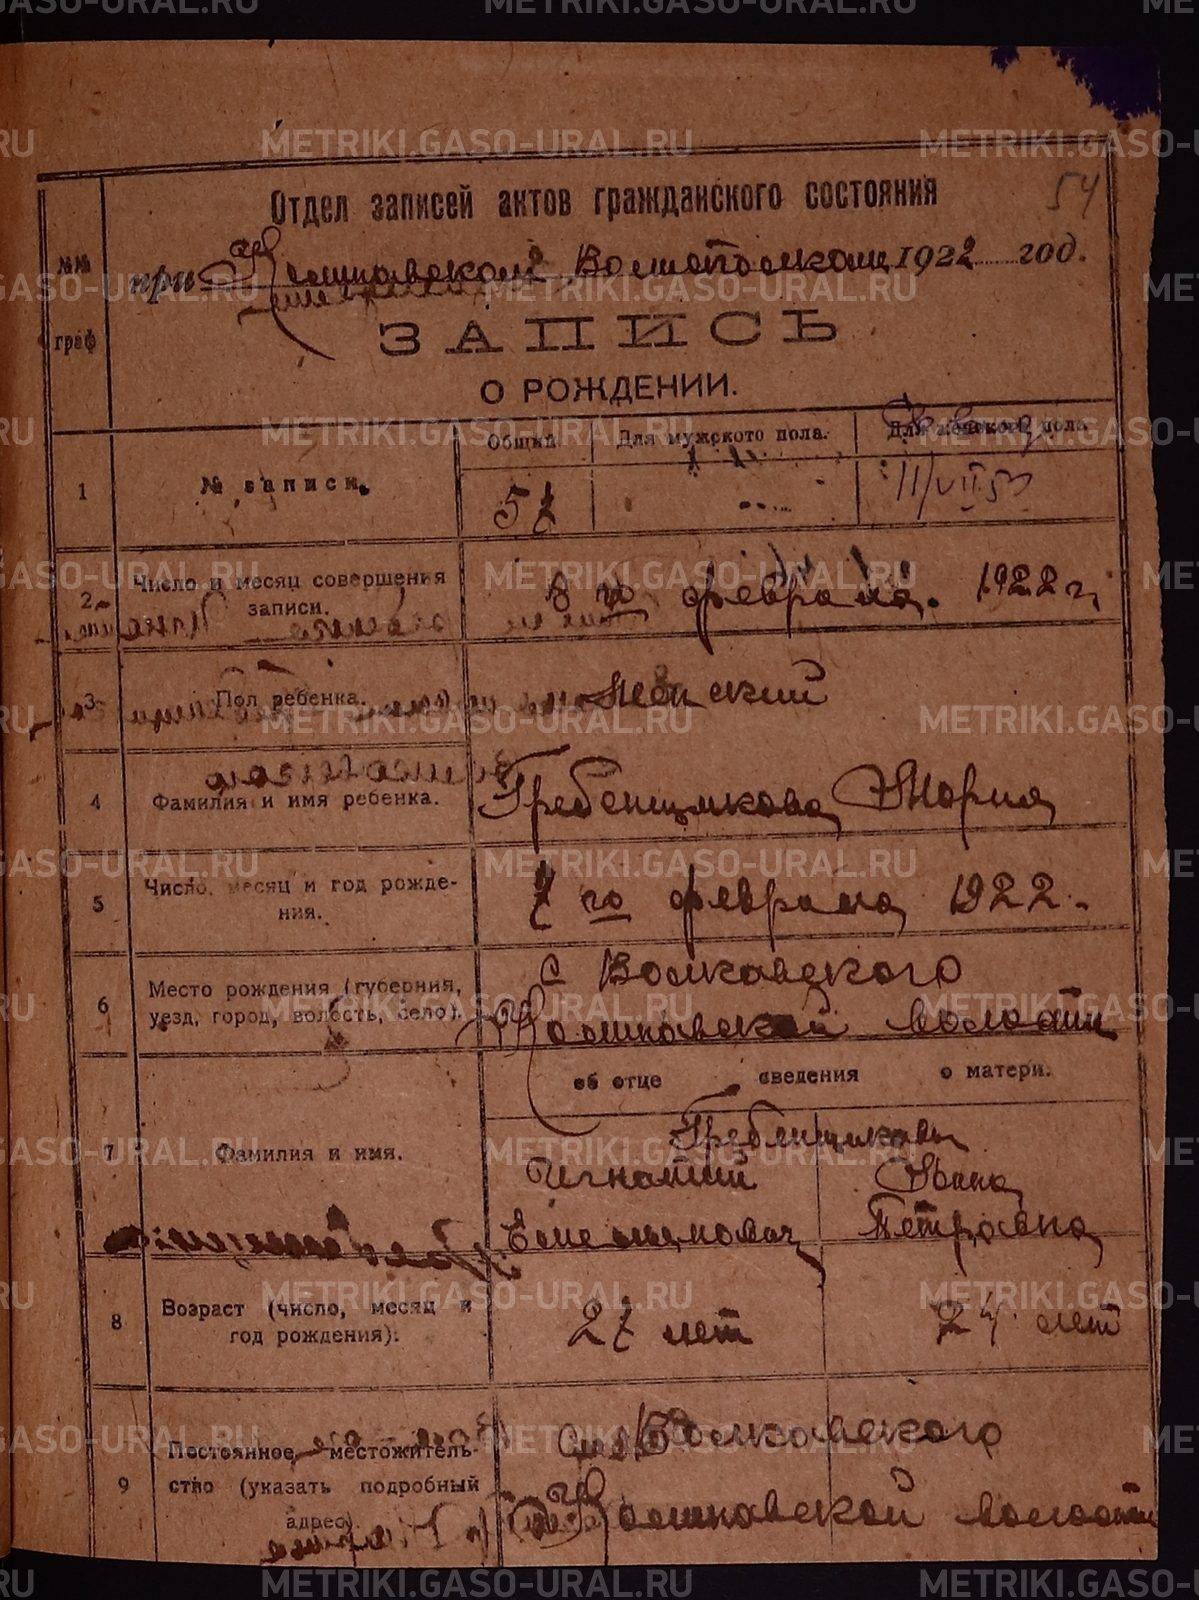 METRIKI.GASO-URAL.RU
54
Отдел записей актов гражданского состояния
№№ граф
при Волисполкоме 1922 год.
ЗАПИСЬ
О РОЖДЕНИИ.
Общий Для мужского пола. Для женского пола
1 № записи. 57
11/VII 53
2 Число и месяц совершения
записи.
8 го февраля. 1922 г.
3 Пол ребенка. женский
4 Фамилия и имя ребенка. Гребенщикова Мария
5 Число, месяц и год рожде-
ния.
7 го февраля 1922.
6 Место рождения (губерния,
уезд, город, волость, село).
с Волковского
волости
об отце сведения о матери.
7 Фамилия и имя.
Гребенщиковы
Игнатий Анна
Емельянович Петровна
8 Возраст (число, месяц и
год рождения).
27 лет 24 лет
9 Постоянное местожитель-
ство (указать подробный
адрес).
Волковского
волости